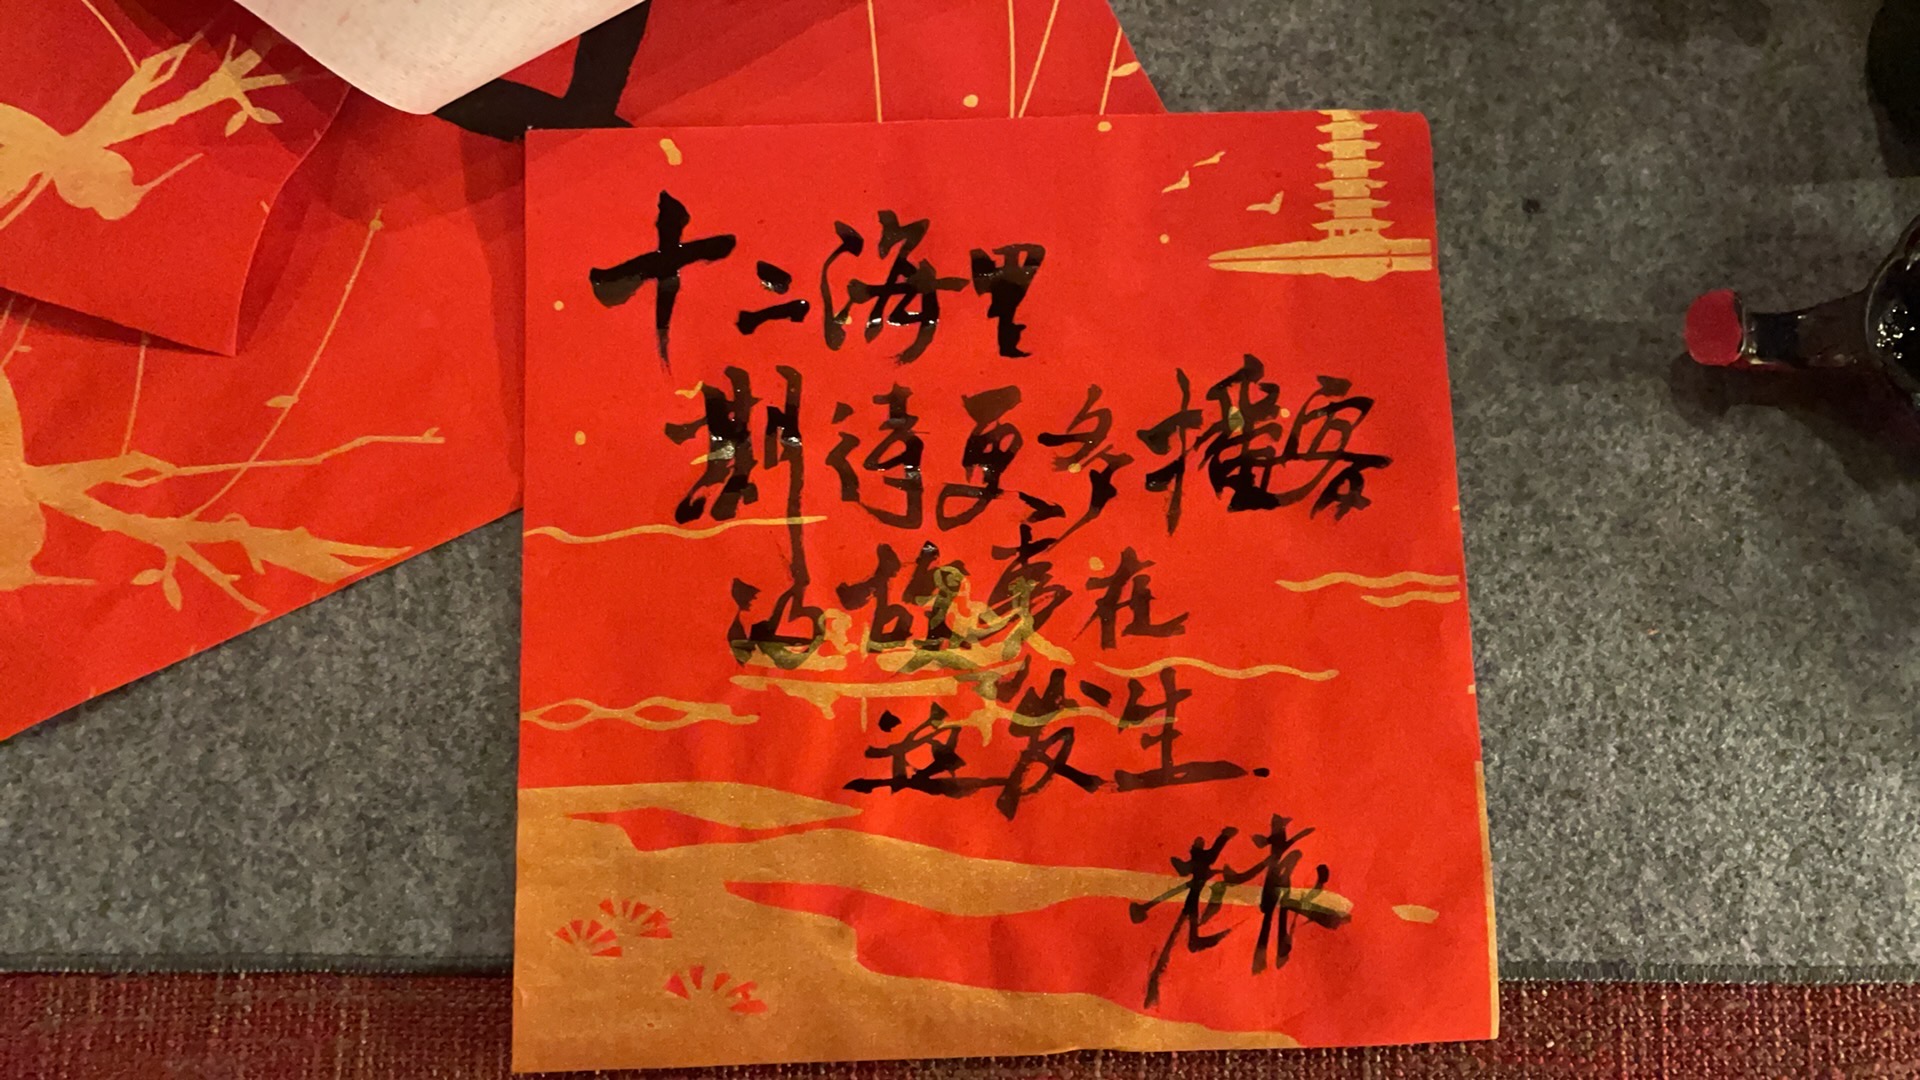 十二海里
期待更多播客
的故事在
这发生.
老袁